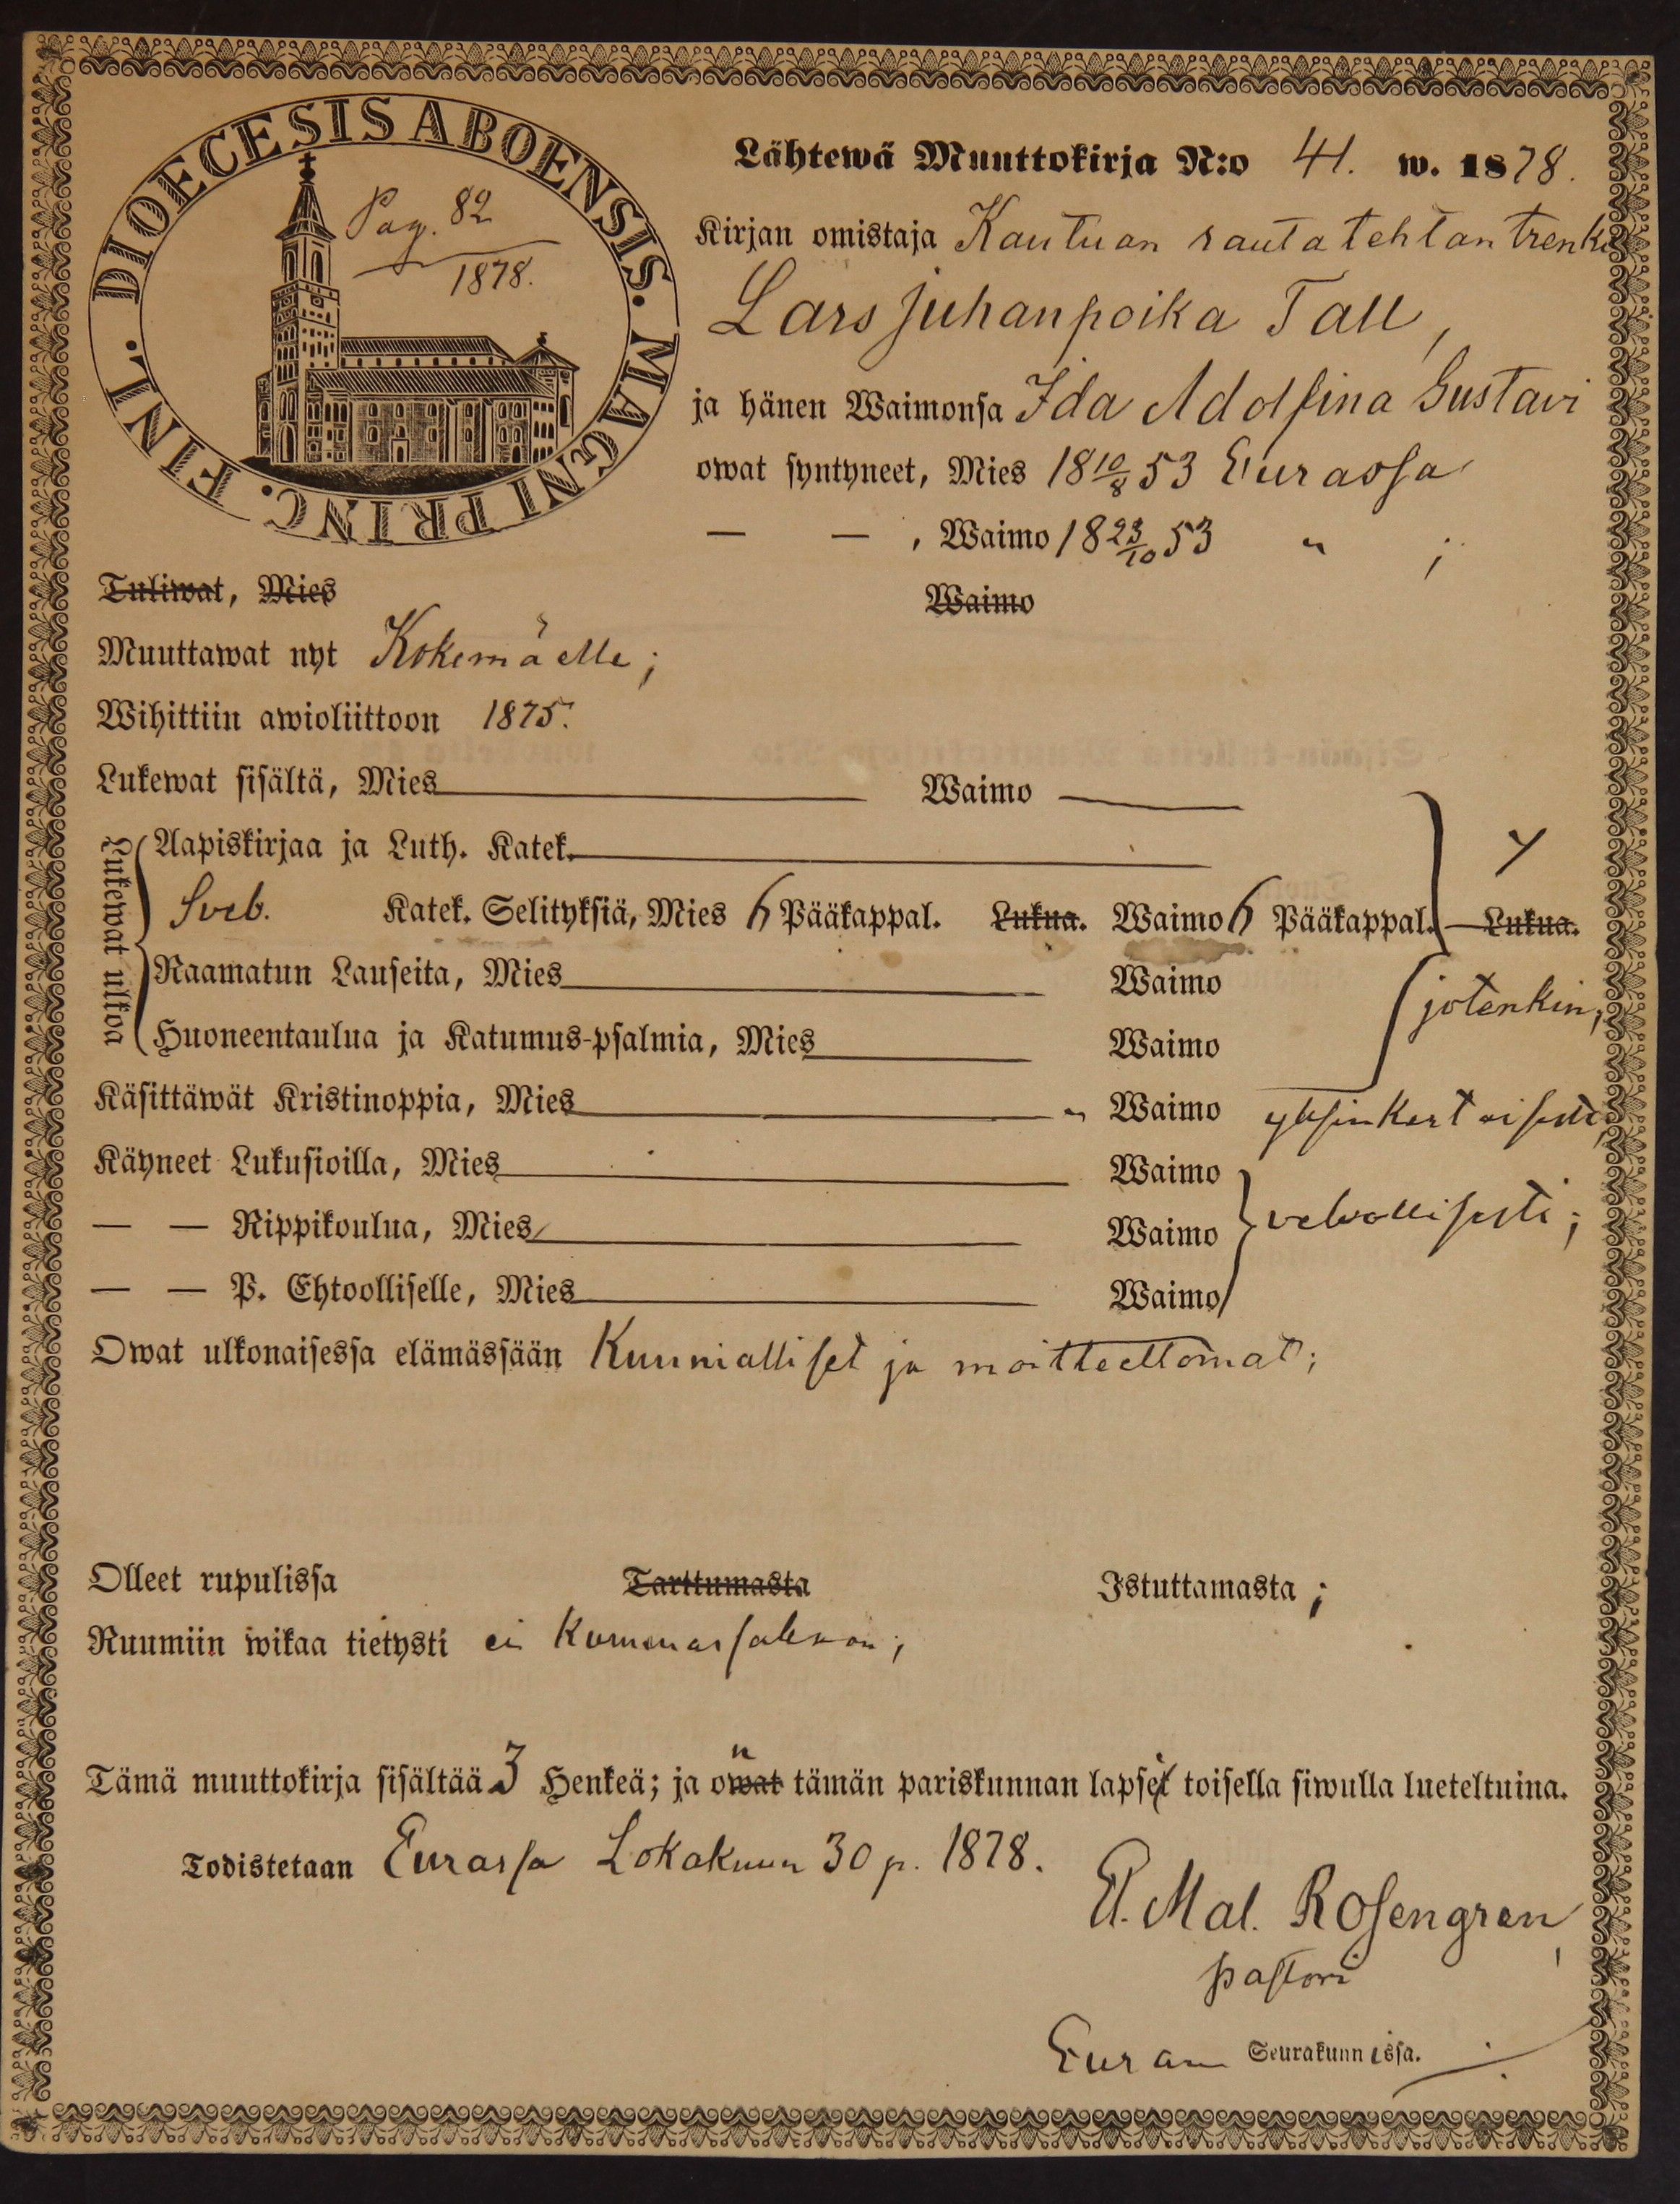 DIOECESIS ABOENSIS. MAGNI PRINC. FINL.
Pag. 82
1878.
Lähtewä Muuttokirja N:o 41. w. 1878.
Kirjan omistaja Kautuan rautatehtan trenki
Lars Juhanpoika Tall,
ja hänen Waimonsa Ida Adolfina Gustavi
owat syntyneet, Mies 18 10/8 53 Eurassa
— — , Waimo 18 23/10 53 " ;
Tuliwat, Mies Waimo
Muuttawat nyt Kokemäelle;
Wihittiin awioliittoon 1875.
Lukewat sisältä, Mies Waimo
Lukewat ulkoa
Aapiskirjaa ja Luth. Katek.
Sveb. Katek. Selityksiä, Mies 6 Pääkappal. Lukua. Waimo 6 Pääkappal. Lukua.
Raamatun Lauseita, Mies Waimo
jotenkin,
Huoneentaulua ja Katumus-psalmia, Mies Waimo
Käsittäwät Kristinoppia, Mies " Waimo yksinkertaisesti,
Käyneet Lukusioilla, Mies Waimo
— — Rippikoulua, Mies Waimo velvollisesti;
— — P. Ehtoolliselle, Mies Waimo
Owat ulkonaisessa elämässään Kunnialliset ja moitteettomat;
Olleet rupulissa Tarttumasta Istuttamasta;
Ruumiin wikaa tietysti ei Kummassakaan;
Tämä muuttokirja sisältää 3 Henkeä; ja owat n tämän pariskunnan lapset toisella siwulla lueteltuina.
Todistetaan Eurassa Lokakuun 30 p. 1878.
El. Mal. Rosengren,
pastori
Euran Seurakunnissa.